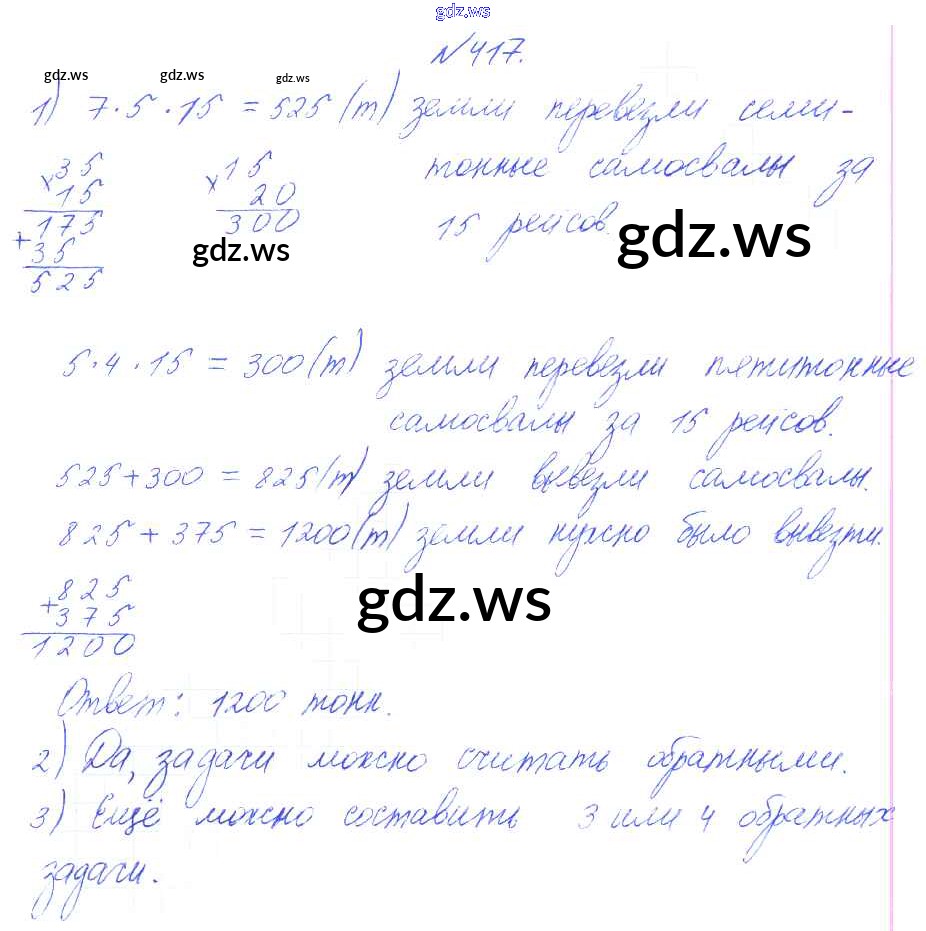 gdz.ws
№417.
gdz.ws gdz.ws gdz.ws
1) 7·5·15 = 525 (т) земли перевезли семи-
тонные самосвалы за
15 рейсов.
×35
15
175
+35
525
×15
20
300
gdz.ws
gdz.ws
5·4·15 = 300 (т) земли перевезли пятитонные
самосвалы за 15 рейсов.
525+300 = 825 (т) земли вывезли самосвалы.
825 + 375 = 1200 (т) земли нужно было вывезти.
+825
375
1200
gdz.ws
Ответ: 1200 тонн.
2) Да, задачи можно считать обратными.
3) Ещё можно составить 3 или 4 обратных
задачи.